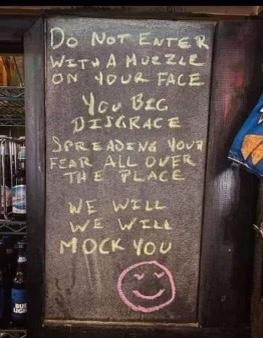 DO NOT ENTER
WITH A MUZZLE
ON YOUR FACE
YOU BIG
DISGRACE
SPREADING YOUR
FEAR ALL OVER
THE PLACE
WE WILL
WE WILL
MOCK YOU
BUD
LIGHT